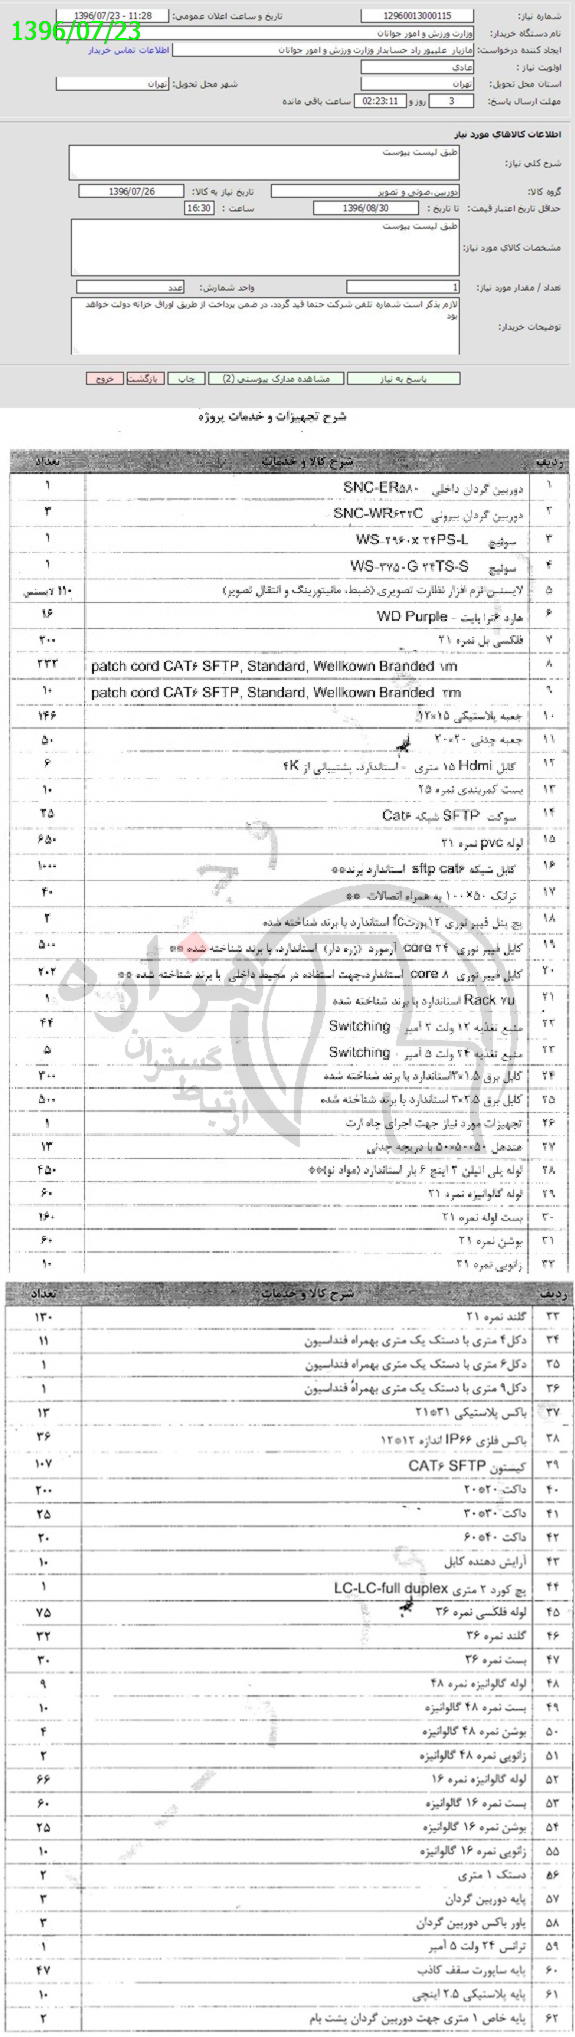 1396/07/23
شماره نیاز: 12960013000115 تاریخ و ساعت اعلان عمومی: 1396/07/23 - 11:28
نام دستگاه خریدار: وزارت ورزش و امور جوانان
ایجاد کننده درخواست: مازیار علیپور راد حسابدار وزارت ورزش و امور جوانان اطلاعات تماس خریدار
اولویت نیاز : عادی
استان محل تحویل: تهران شهر محل تحویل: تهران
مهلت ارسال پاسخ: 3 روز و 02:23:11 ساعت باقی مانده
اطلاعات کالاهای مورد نیاز
شرح کلی نیاز: طبق لیست پیوست
گروه کالا: دوربین،صوتی و تصویر تاریخ نیاز به کالا: 1396/07/26
حداقل تاریخ اعتبار قیمت: تا تاریخ : 1396/08/30 ساعت : 16:30
مشخصات کالای مورد نیاز: طبق لیست پیوست
تعداد / مقدار مورد نیاز: 1 واحد شمارش: عدد
توضیحات خریدار: لازم بذکر است شماره تلفن شرکت حتما قید گردد، در ضمن پرداخت از طریق اوراق خزانه دولت خواهد
بود
پاسخ به نیاز مشاهده مدارک پیوستی (2) چاپ بازگشت خروج
شرح تجهیزات و خدمات پروژه
ردیف شرح کالا و خدمات تعداد
۱ دوربین گردان داخلی SNC-ER۵۸۰ ۱
۲ دوربین گردان بیرونی SNC-WR۶۳۲C ۳
۳ سوئیچ WS-۲۹۶۰x ۲۴PS-L ۱
۴ سوئیچ WS-۳۷۵۰G ۲۴TS-S ۱
۵ لایسنس نرم افزار نظارت تصویری (ضبط، مانیتورینگ و انتقال تصویر) ۱۱۰ لایسنس
۶ هارد ۶ترا بایت - WD Purple ۱۶
۷ فلکسی پل نمره ۲۱ ۳۰۰
۸ patch cord CAT۶ SFTP, Standard, Wellkown Branded ۱m ۲۳۲
۹ patch cord CAT۶ SFTP, Standard, Wellkown Branded ۳m ۱۰
۱۰ جعبه پلاستیکی ۱۵*۱۲ ۱۴۶
۱۱ جعبه چدنی ۲۰*۲۰ ۵۰
۱۲ کابل Hdmi ۱۵ متری - استاندارد، پشتیبانی از ۴K ۶
۱۳ بست کمربندی نمره ۲۵ ۱۰
۱۴ سوکت SFTP شبکه Cat۶ ۳۵
۱۵ لوله pvc نمره ۲۱ ۶۵۰
۱۶ کابل شبکه sftp cat۶ استاندارد برند** ۱۰۰۰
۱۷ ترانک ۵۰*۱۰۰ به همراه اتصالات ** ۴۰
۱۸ پچ پنل فیبر نوری ۱۲ پورت fc استاندارد با برند شناخته شده ۲
۱۹ کابل فیبر نوری core ۲۴ آرمورد (زره دار) استاندارد، با برند شناخته شده ** ۵۰۰
۲۰ کابل فیبر نوری core ۸ استاندارد،جهت استفاده در محیط داخلی با برند شناخته شده ** ۲۰۲
۲۱ Rack ۷u استاندارد با برند شناخته شده ۱
۲۲ منبع تغذیه ۱۲ ولت ۲ آمپر - Switching ۴۴
۲۳ منبع تغذیه ۲۴ ولت ۵ آمپر - Switching ۵
۲۴ کابل برق ۱.۵*۳ استاندارد با برند شناخته شده ۳۰۰
۲۵ کابل برق ۲.۵*۳ استاندارد با برند شناخته شده ۵۰۰
۲۶ تجهیزات مورد نیاز جهت اجرای چاه ارت ۱
۲۷ هندهل ۵۰*۵۰*۵۰ با دریچه چدنی ۱۳
۲۸ لوله پلی اتیلن ۳ اینچ ۶ بار استاندارد (مواد نو)** ۴۵۰
۲۹ لوله گالوانیزه نمره ۲۱ ۶۰
۳۰ بست لوله نمره ۲۱ ۲۶۰
۳۱ بوشن نمره ۲۱ ۶۰
۳۲ زانویی نمره ۲۱ ۱۰
ردیف شرح کالا و خدمات تعداد
۳۳ گلند نمره ۲۱ ۱۳۰
۳۴ دکل۴ متری با دستک یک متری بهمراه فنداسیون ۱۱
۳۵ دکل۶ متری با دستک یک متری بهمراه فنداسیون ۱
۳۶ دکل۹ متری با دستک یک متری بهمراه فنداسیون ۱
۳۷ باکس پلاستیکی ۳۱*۲۱ ۱۳
۳۸ باکس فلزی IP۶۶ اندازه ۱۲*۱۲ ۳۶
۳۹ کیستون CAT۶ SFTP ۱۰۷
۴۰ داکت ۲۰*۲۰ ۲۰۰
۴۱ داکت ۳۰*۳۰ ۲۵
۴۲ داکت ۴۰*۶۰ ۲۰
۴۳ آرایش دهنده کابل ۱۰
۴۴ پچ کورد ۲ متری LC-LC-full duplex ۱
۴۵ لوله فلکسی نمره ۳۶ ۷۵
۴۶ گلند نمره ۳۶ ۳۲
۴۷ بست نمره ۳۶ ۳۰
۴۸ لوله گالوانیزه نمره ۴۸ ۹
۴۹ بست نمره ۴۸ گالوانیزه ۱۰
۵۰ بوشن نمره ۴۸ گالوانیزه ۴
۵۱ زانویی نمره ۴۸ گالوانیزه ۲
۵۲ لوله گالوانیزه نمره ۱۶ ۶۶
۵۳ بست نمره ۱۶ گالوانیزه ۶۰
۵۴ بوشن نمره ۱۶ گالوانیزه ۲۵
۵۵ زانویی نمره ۱۶ گالوانیزه ۱۰
۵۶ دستک ۱ متری ۲
۵۷ پایه دوربین گردان ۳
۵۸ پاور باکس دوربین گردان ۳
۵۹ ترانس ۲۴ ولت ۵ آمپر ۱
۶۰ پایه ساپورت سقف کاذب ۴۷
۶۱ پایه پلاستیکی ۲.۵ اینچی ۱۰
۶۲ پایه خاص ۱ متری جهت دوربین گردان پشت بام ۲
هزاره
گستران
ارتباط